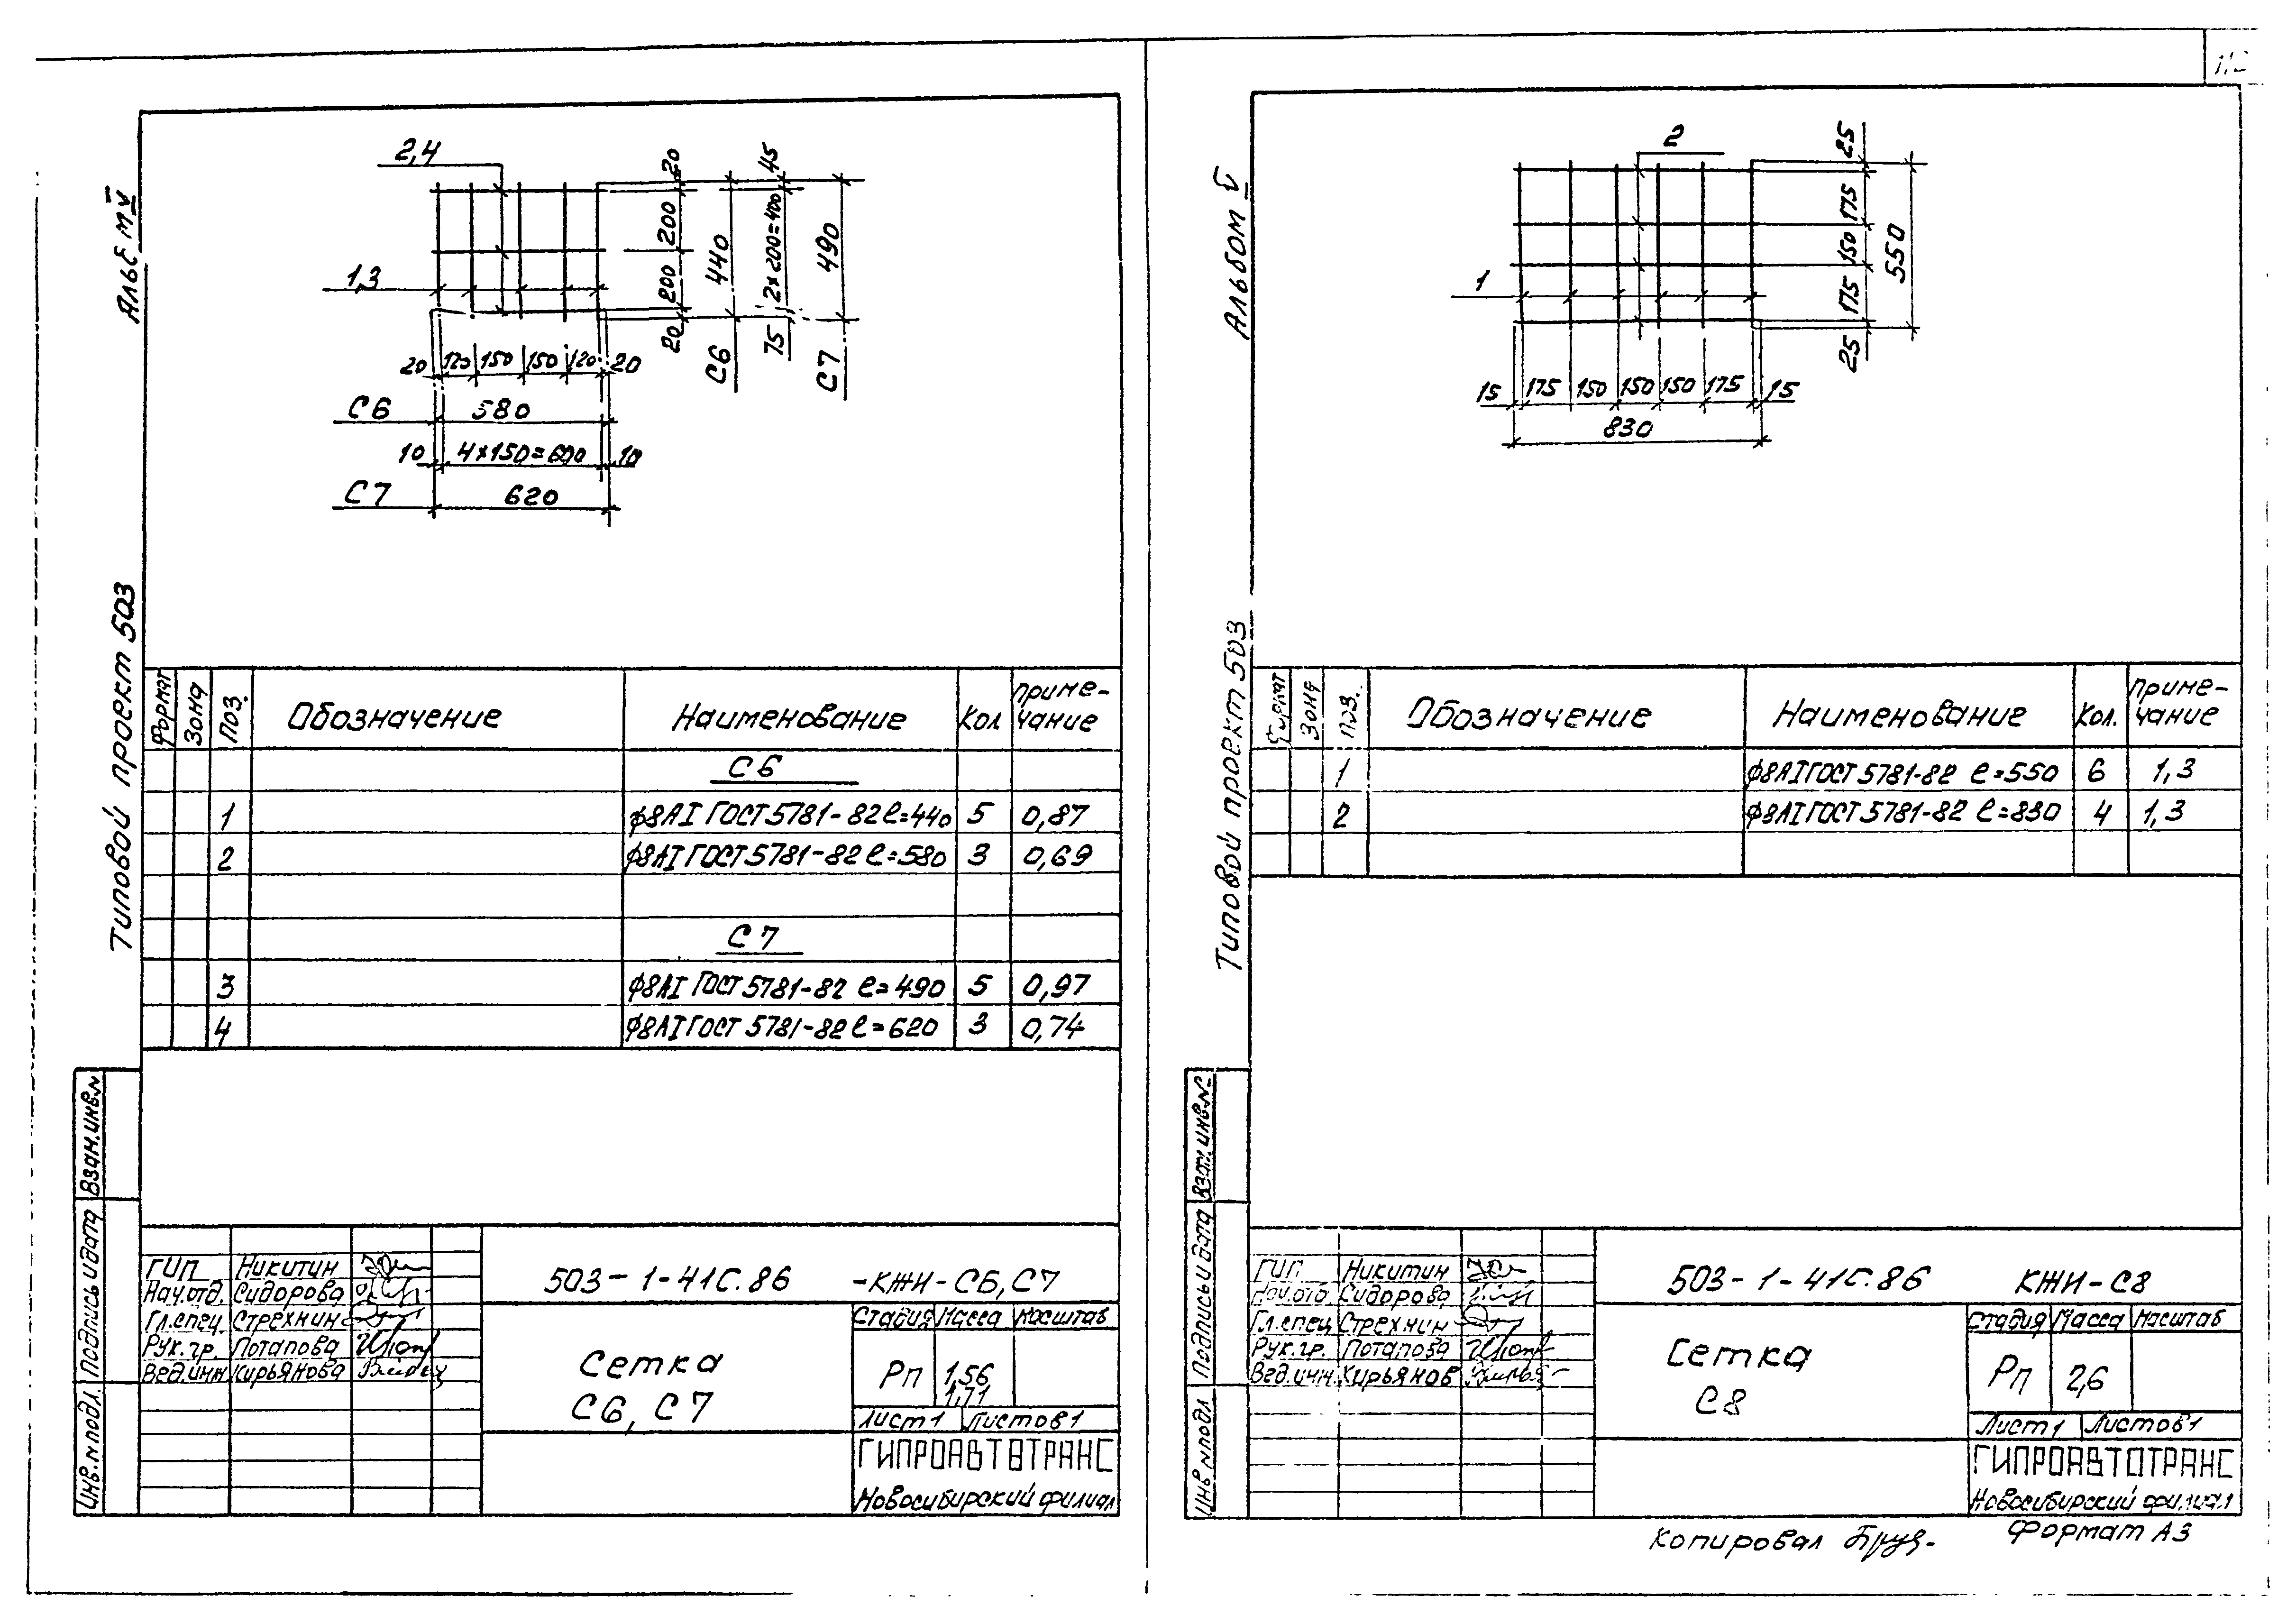 Альбом V
Типовой проект 503
2,4
1,3
20
200
200
20
440
С6
45
2×200=400
75
490
С7
20 120 150 150 120 20
С6 580
10 4×150=600 10
С7 620
Формат Зона Поз. Обозначение Наименование Кол Приме-
чание
С6
1 ф8АI ГОСТ 5781-82 ℓ=440 5 0,87
2 ф8АI ГОСТ 5781-82 ℓ=580 3 0,69
С7
3 ф8АI ГОСТ 5781-82 ℓ=490 5 0,97
4 ф8АI ГОСТ 5781-82 ℓ=620 3 0,74
Взам.инв.N
Подпись и дата
Инв.N подл.
ГИП Никитин
Нач.отд. Сидорова
Гл.спец. Стрехнин
Рук.гр. Потапова
Вед.инн Кирьянова
503-1-41С.86 -КЖИ-С6,С7
Сетка
С6, С7
Стадия Масса Масштаб
Рп 1,56
1,71
Лист 1 Листов 1
ГИПРОАВТОТРАНС
Новосибирский филиал
Альбом V
Типовой проект 503
2
1
25
175
150
175
25
550
15 175 150 150 150 175 15
830
Формат Зона Поз. Обозначение Наименование Кол. Приме-
чание
1 ф8АI ГОСТ 5781-82 ℓ=550 6 1,3
2 ф8АI ГОСТ 5781-82 ℓ=830 4 1,3
Взам.инв.N
Подпись и дата
Инв N подл
ГИП Никитин
Нач.отд. Сидорова
Гл.спец Стрехнин
Рук.гр. Потапова
Вед.инн. Кирьянов
503-1-41С.86 КЖИ-С8
Сетка
С8
Стадия Масса Масштаб
Рп 2,6
Лист 1 Листов 1
ГИПРОАВТОТРАНС
Новосибирский филиал
Копировал Формат А3